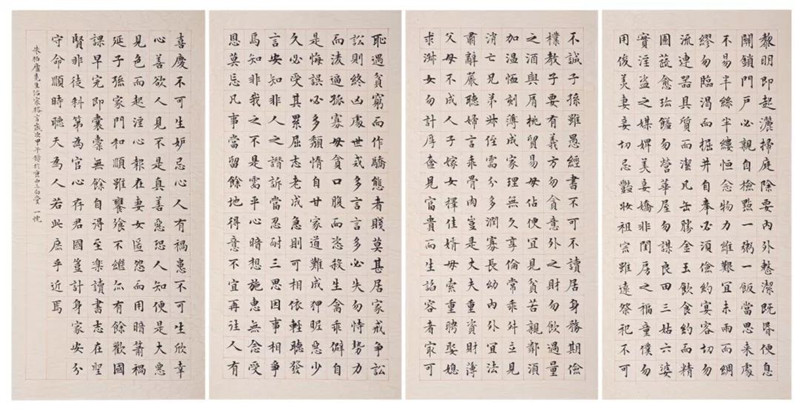 黎明即起灑掃庭除要內外整潔既昏便息
關鎖門戶必親自檢點一粥一飯當思來處
不易半絲半縷恒念物力維艱宜未雨而綢
繆勿臨渴而掘井自奉必須儉約宴客切勿
流連器具質而潔瓦缶勝金玉飲食約而精
園蔬愈珍饈勿營華屋勿謀良田三姑六婆
實淫盜之媒婢美妾嬌非閨房之福童僕勿
用俊美妻妾切忌艷妝祖宗雖遠祭祀不可
不誠子孫雖愚經書不可不讀居身務期儉
樸教子要有義方勿貪意外之財勿飲過量
之酒與肩挑貿易毋佔便宜見貧苦親鄰須
加溫恤刻薄成家理無久享倫常乖舛立見
消亡兄弟叔侄需分多潤寡長幼內外宜法
肅辭嚴聽婦言乖骨肉豈是丈夫重資財薄
父母不成人子嫁女擇佳婿毋索重聘娶媳
求淑女勿計厚奩見富貴而生諂容者最可
恥遇貧窮而作驕態者賤莫甚居家戒爭訟
訟則終凶處世戒多言言多必失勿恃勢力
而淩逼孤寡毋貪口腹而恣殺生禽乖僻自
是悔誤必多頹惰自甘家道難成狎暱惡少
久必受其累屈志老成急則可相依輕聽發
言安知非人之譖訴當忍耐三思因事相爭
焉知非我之不是需平心暗想施惠無念受
恩莫忘凡事當留餘地得意不宜再往人有
喜慶不可生妒忌心人有禍患不可生欣幸
心善欲人見不是真善惡恐人知便是大惡
見色而起淫心報在妻女匿怨而用暗箭禍
延子孫家門和順雖饔飧不繼亦有餘歡國
課早完即囊橐無餘自得至樂讀書志在聖
賢非徒科第為官心存君國豈計身家安分
守命順時聽天為人若此庶乎近焉
朱柏廬先生治家格言歲次甲午 一悅